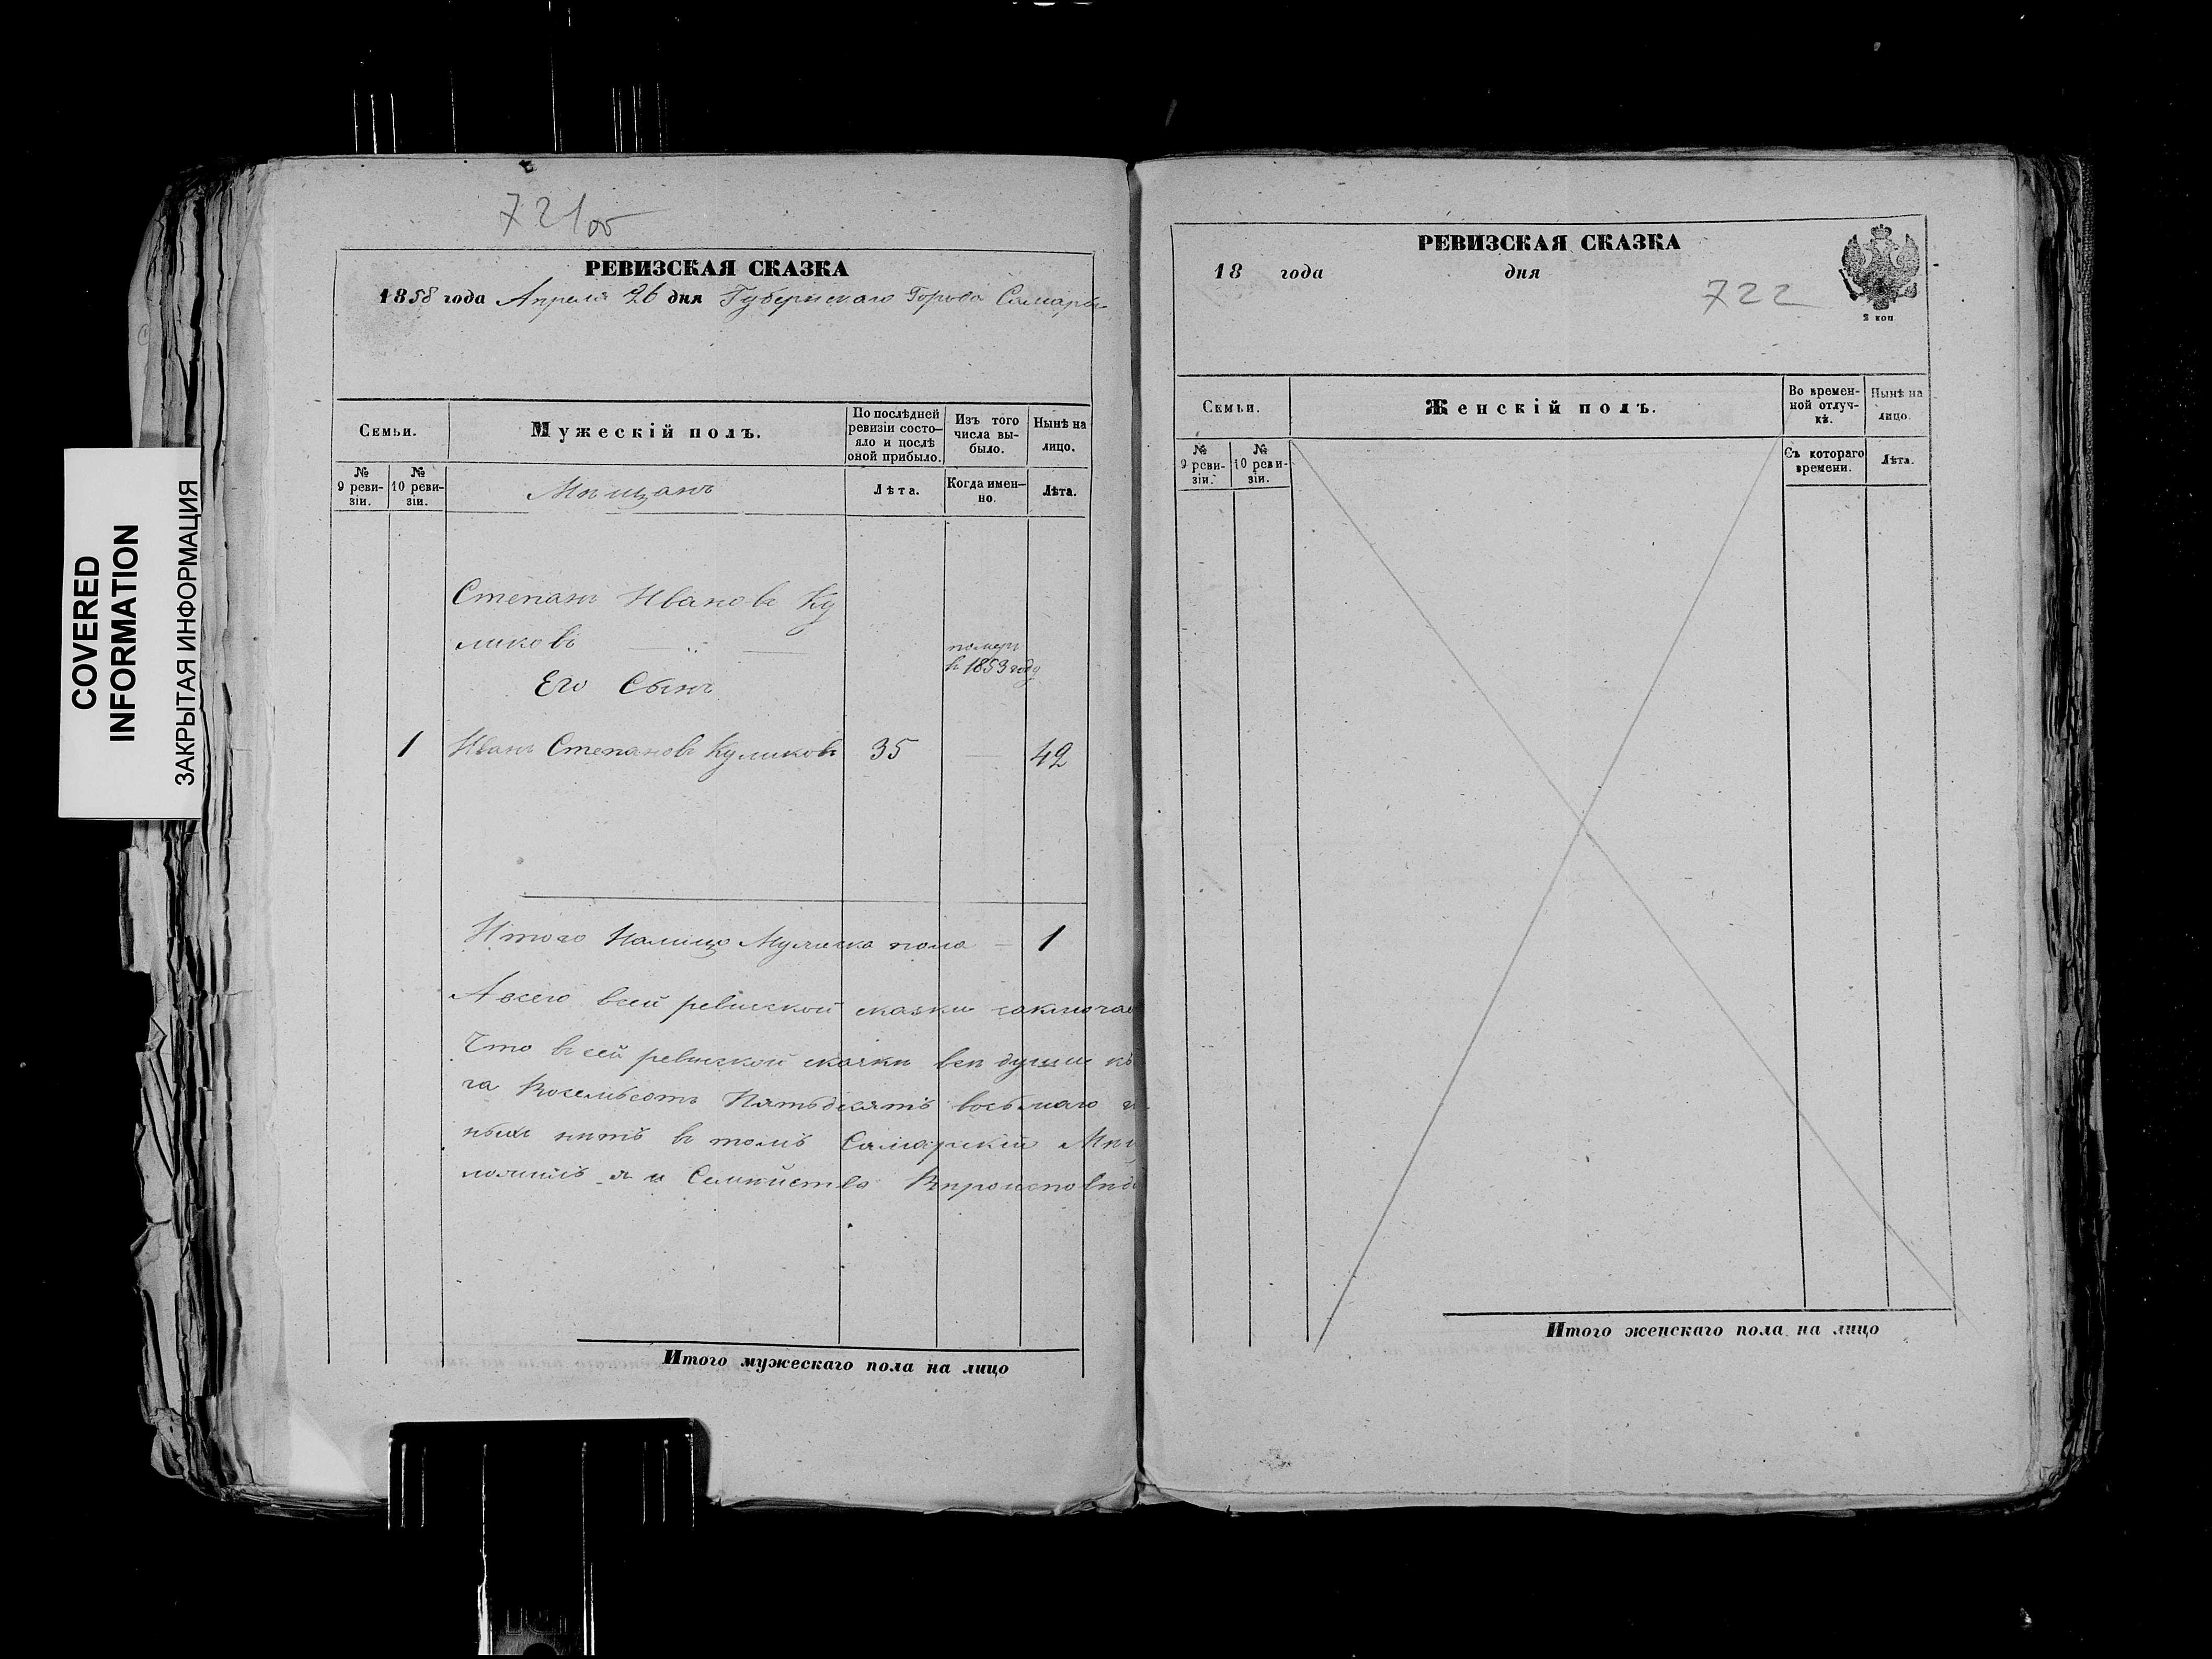 COVERED
INFORMATION
ЗАКРЫТАЯ ИНФОРМАЦИЯ
721об
РЕВИЗСКАЯ СКАЗКА
1858 года Апреля 26 дня Губернскаго Города Самары
Семьи.
Мужескій полъ.
По послѣдней
ревизіи состо-
яло и послѣ
оной прибыло.
Изъ того
числа вы-
было.
Нынѣ на
лицо.
№
9 реви-
зіи.
№
10 реви-
зіи.
Мѣщанъ
Лѣта.
Когда имен-
но.
Лѣта.
Степанъ Ивановъ Ку
ликовъ
померъ
въ 1853 году
Его Сынъ
1 Иванъ Степановъ Куликовъ 35 — 42
Итого Налицо Мужеска пола — 1
А всего всей ревиской сказки заключае
Что в сей ревиской сказки всѣ души къ
га Восемьсотъ Пятьдесятъ восьмаго
ныхъ нитъ в томъ Самарскій Мѣщ
ложилъ я и Семийство
Итого мужескаго пола на лицо
РЕВИЗСКАЯ СКАЗКА
18 года дня
722
2 коп
Семьи.
Женскій полъ.
Во времен-
ной отлуч-
кѣ.
Нынѣ на
лицо.
№
9 реви-
зіи.
№
10 реви-
зіи.
Съ котораго
времени.
Лѣта.
Итого женскаго пола на лицо